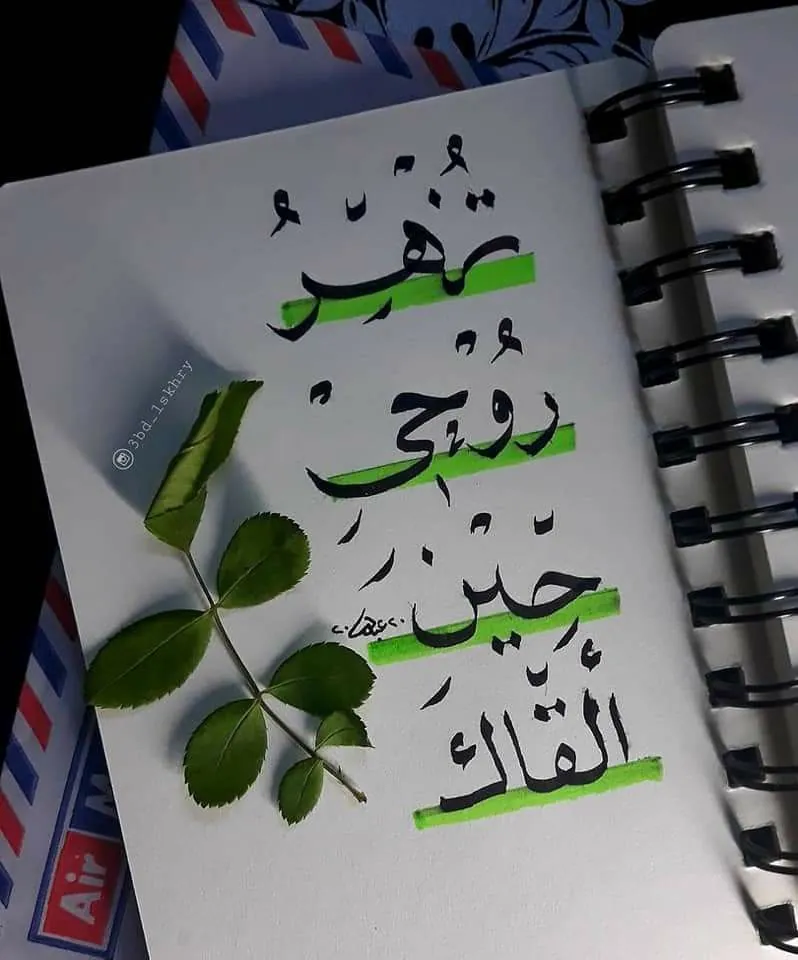 تُزْهِرُ
رُوْحِيْ
حِيْن
ألقاكَ
3bd_1skhry
Air